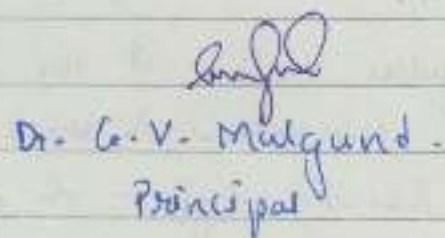 Dr. G. V. Mulgund.
Principal